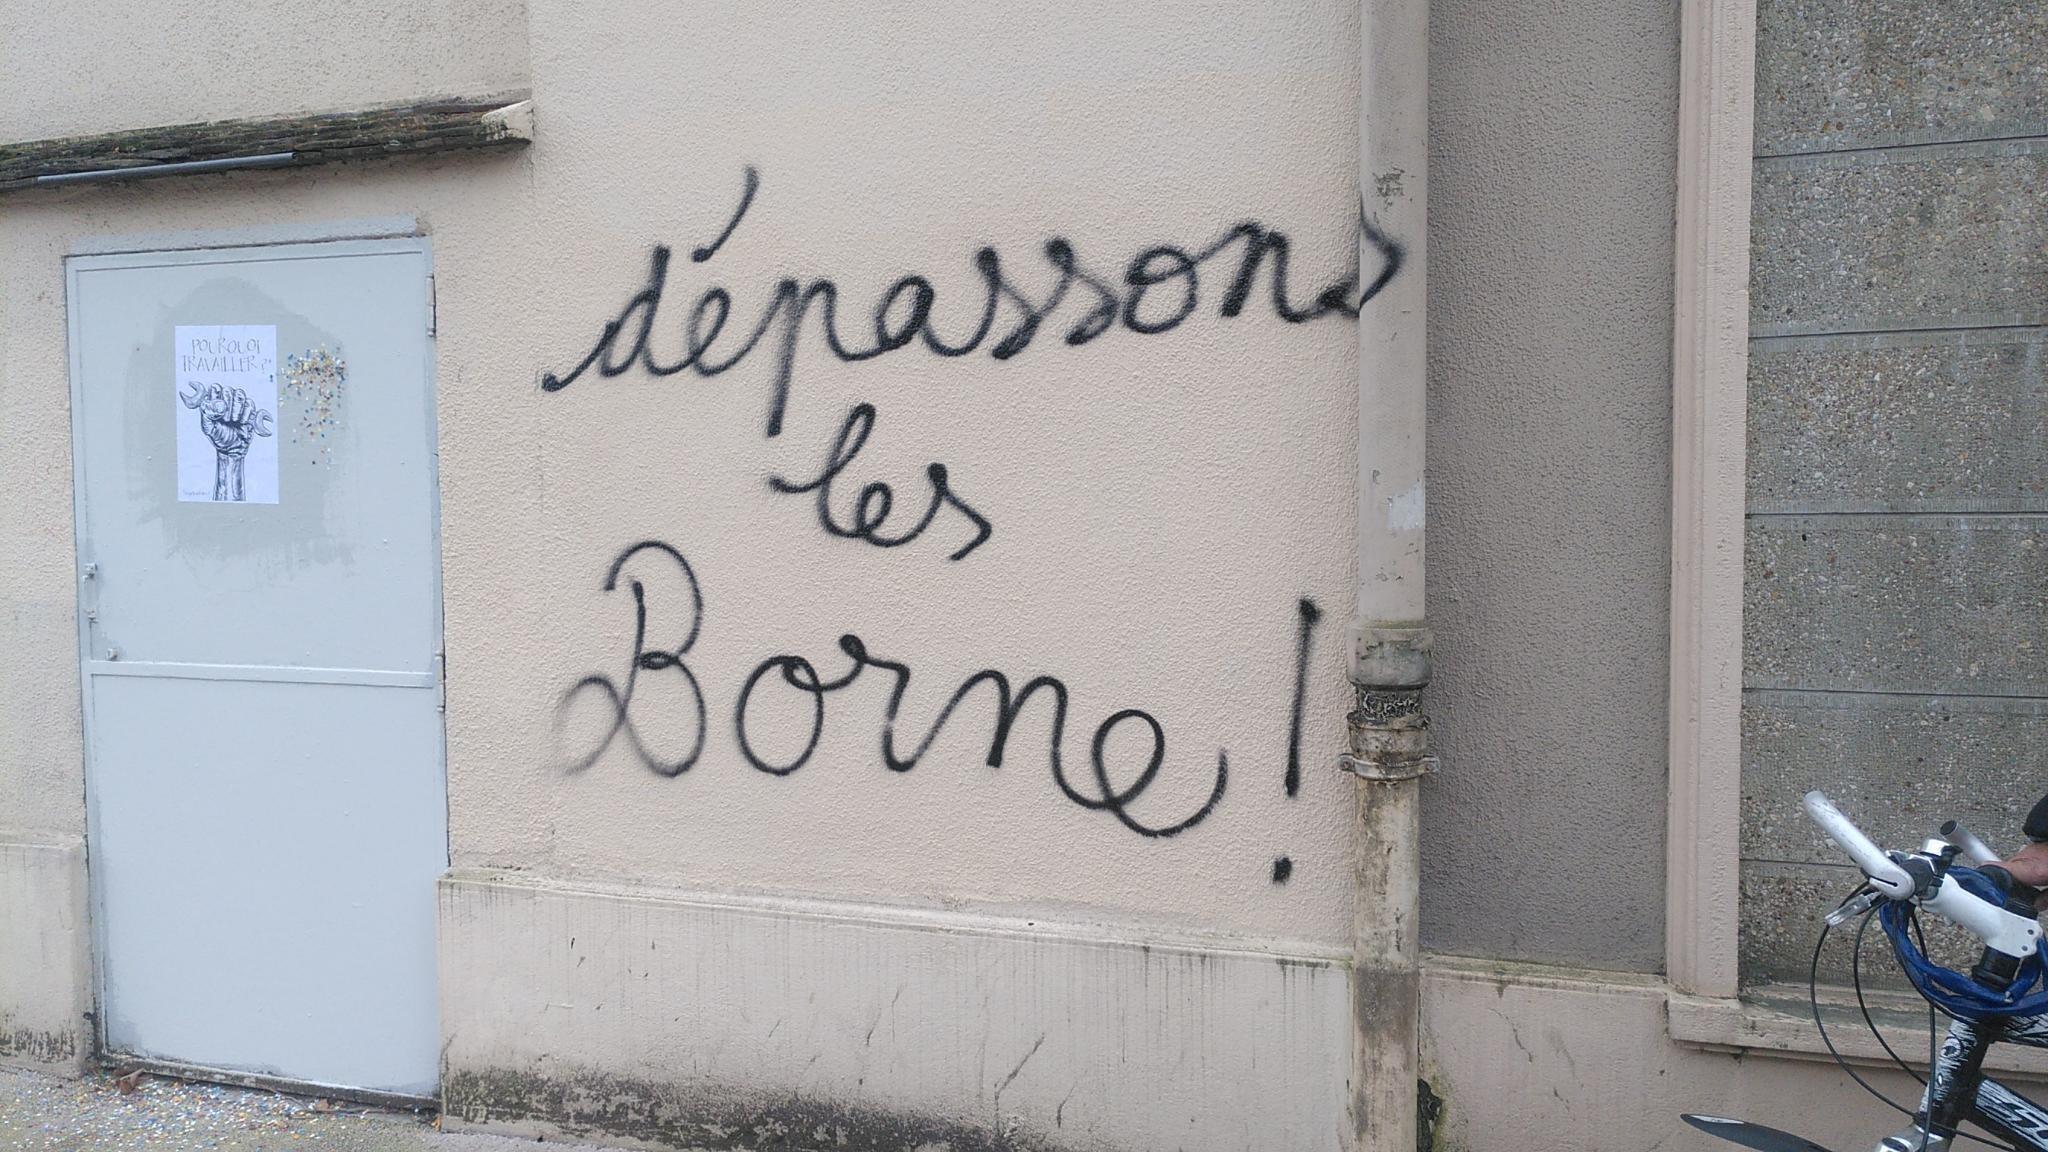 POURQUOI
TRAVAILLER ?
dépassons
les
Borne !